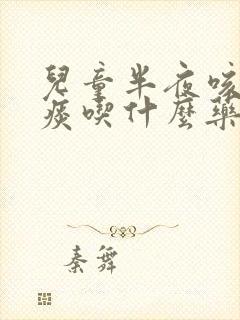 兒童半夜咳
痰喫什麼藥
秦舞